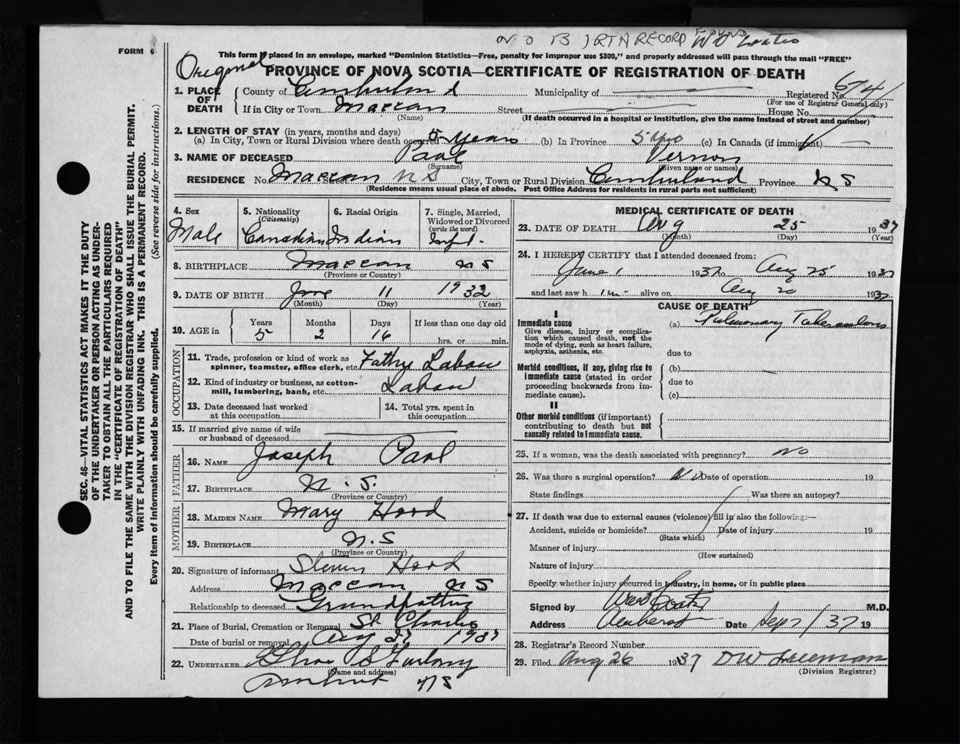 NO BIRTH RECORD FOUND
W D Coates
FORM 6
This form if placed in an envelope, marked "Dominion Statistics—Free, penalty for improper use $300," and properly addressed will pass through the mail "FREE"
Original
PROVINCE OF NOVA SCOTIA—CERTIFICATE OF REGISTRATION OF DEATH
1. PLACE OF DEATH
County of Cumberland Municipality of Registered No. 641
(For use of Registrar General only)
If in City or Town Maccan Street House No.
(Name) (If death occurred in a hospital or institution, give the name instead of street and number)
2. LENGTH OF STAY (in years, months and days)
(a) In City, Town or Rural Division where death occurred 5 years (b) In Province 5 yrs (c) In Canada (if immigrant)
3. NAME OF DECEASED Paul Vernon
(Surname) (Given name or names)
RESIDENCE No. Maccan Street N S City, Town or Rural Division Cumberland Province N S
(Residence means usual place of abode. Post Office Address for residents in rural parts not sufficient)
4. Sex
Male
5. Nationality
(Citizenship)
Canadian
6. Racial Origin
Indian
7. Single, Married, Widowed or Divorced
(write the word)
8. BIRTHPLACE Maccan N S
(Province or Country)
9. DATE OF BIRTH June 11 1932
(Month) (Day) (Year)
10. AGE in
Years Months Days If less than one day old
5 2 14 hrs. or min.
OCCUPATION
11. Trade, profession or kind of work as spinner, teamster, office clerk, etc. Father Labour
12. Kind of industry or business, as cotton-mill, lumbering, bank, etc. Labour
13. Date deceased last worked at this occupation
14. Total yrs. spent in this occupation
15. If married give name of wife or husband of deceased
FATHER
16. NAME Joseph Paul
17. BIRTHPLACE N.S.
(Province or Country)
MOTHER
18. MAIDEN NAME Mary Hood
19. BIRTHPLACE N.S
(Province or Country)
20. Signature of informant Steven Hood
Address Maccan N S
Relationship to deceased Grandfather
21. Place of Burial, Cremation or Removal St Charles
Date of burial or removal Aug 27 1937
22. UNDERTAKER
(Name and address)
Amherst N S
MEDICAL CERTIFICATE OF DEATH
23. DATE OF DEATH Aug 25 1937
(Month) (Day) (Year)
24. I HEREBY CERTIFY that I attended deceased from:
June 1 1937 to Aug 25 1937
and last saw h im alive on Aug 20 1937
CAUSE OF DEATH
I
Immediate cause
Give disease, injury or complication which caused death, not the mode of dying, such as heart failure, asphyxia, asthenia, etc.
(a) Pulmonary Tuberculosis
due to
Morbid conditions, if any, giving rise to immediate cause (stated in order proceeding backwards from immediate cause).
(b)
due to
(c)
II
Other morbid conditions (if important) contributing to death but not causally related to immediate cause.
25. If a woman, was the death associated with pregnancy? No
26. Was there a surgical operation? No Date of operation 19
State findings Was there an autopsy?
27. If death was due to external causes (violence) fill in also the following:—
Accident, suicide or homicide? Date of injury 19
(State which)
Manner of injury
(How sustained)
Nature of injury
Specify whether injury occurred in industry, in home, or in public place
Signed by M.D.
Address Amherst Date Sep 1/37 19
28. Registrar's Record Number
29. Filed Aug 26 1937 D W Freeman
(Division Registrar)
SEC. 46—VITAL STATISTICS ACT MAKES IT THE DUTY
OF THE UNDERTAKER OR PERSON ACTING AS UNDER-
TAKER TO OBTAIN ALL THE PARTICULARS REQUIRED
IN THE "CERTIFICATE OF REGISTRATION OF DEATH"
AND TO FILE THE SAME WITH THE DIVISION REGISTRAR WHO SHALL ISSUE THE BURIAL PERMIT.
WRITE PLAINLY WITH UNFADING INK. THIS IS A PERMANENT RECORD.
Every item of information should be carefully supplied. (See reverse side for instructions.)